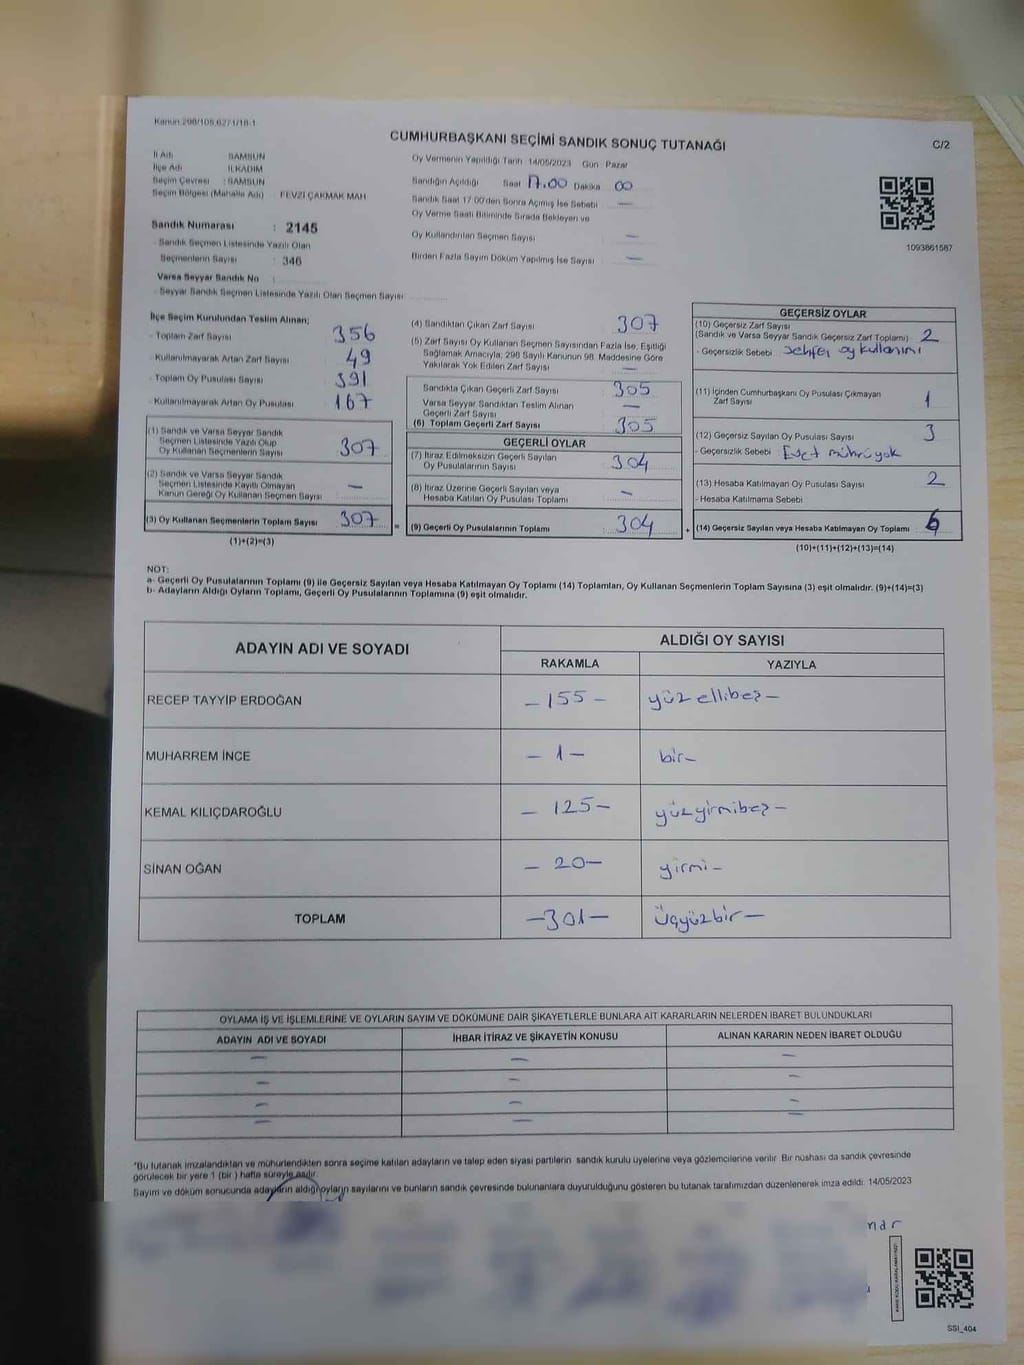 Kanun 298/105,6271/18-1
CUMHURBAŞKANI SEÇİMİ SANDIK SONUÇ TUTANAĞI
C/2
İl Adı SAMSUN
İlçe Adı İLKADIM
Seçim Çevresi : SAMSUN
Seçim Bölgesi (Mahalle Adı) : FEVZİ ÇAKMAK MAH
Sandık Numarası : 2145
- Sandık Seçmen Listesinde Yazılı Olan
Seçmenlerin Sayısı : 346
Varsa Seyyar Sandık No :
- Seyyar Sandık Seçmen Listesinde Yazılı Olan Seçmen Sayısı:
Oy Vermenin Yapıldığı Tarih 14/05/2023 Gün Pazar
Sandığın Açıldığı Saat 17.00 Dakika 00
Sandık Saat 17:00'den Sonra Açılmış İse Sebebi —
Oy Verme Saati Bitiminde Sırada Bekleyen ve
Oy Kullandırılan Seçmen Sayısı : —
Birden Fazla Sayım Döküm Yapılmış İse Sayısı : —
1093861587
İlçe Seçim Kurulundan Teslim Alınan;
- Toplam Zarf Sayısı : 356
- Kullanılmayarak Artan Zarf Sayısı : 49
- Toplam Oy Pusulası Sayısı : 391
- Kullanılmayarak Artan Oy Pusulası : 167
(1) Sandık ve Varsa Seyyar Sandık
Seçmen Listesinde Yazılı Olup
Oy Kullanan Seçmenlerin Sayısı : 307
(2) Sandık ve Varsa Seyyar Sandık
Seçmen Listesinde Kayıtlı Olmayan
Kanun Gereği Oy Kullanan Seçmen Sayısı : —
(3) Oy Kullanan Seçmenlerin Toplam Sayısı : 307
(1)+(2)=(3)
(4) Sandıktan Çıkan Zarf Sayısı : 307
(5) Zarf Sayısı Oy Kullanan Seçmen Sayısından Fazla İse, Eşitliği
Sağlamak Amacıyla; 298 Sayılı Kanunun 98. Maddesine Göre
Yakılarak Yok Edilen Zarf Sayısı : —
Sandıkta Çıkan Geçerli Zarf Sayısı : 305
Varsa Seyyar Sandıktan Teslim Alınan
Geçerli Zarf Sayısı : —
(6) Toplam Geçerli Zarf Sayısı : 305
GEÇERLİ OYLAR
(7) İtiraz Edilmeksizin Geçerli Sayılan
Oy Pusulalarının Sayısı : 304
(8) İtiraz Üzerine Geçerli Sayılan veya
Hesaba Katılan Oy Pusulası Toplamı : —
= (9) Geçerli Oy Pusulalarının Toplamı : 304 +
GEÇERSİZ OYLAR
(10) Geçersiz Zarf Sayısı
(Sandık ve Varsa Seyyar Sandık Geçersiz Zarf Toplamı) : 2
- Geçersizlik Sebebi oy kullanımı
(11) İçinden Cumhurbaşkanı Oy Pusulası Çıkmayan
Zarf Sayısı : 1
(12) Geçersiz Sayılan Oy Pusulası Sayısı : 3
- Geçersizlik Sebebi Evet mührü yok
(13) Hesaba Katılmayan Oy Pusulası Sayısı : 2
- Hesaba Katılmama Sebebi
(14) Geçersiz Sayılan veya Hesaba Katılmayan Oy Toplamı : 6
(10)+(11)+(12)+(13)=(14)
NOT:
a- Geçerli Oy Pusulalarının Toplamı (9) ile Geçersiz Sayılan veya Hesaba Katılmayan Oy Toplamı (14) Toplamları, Oy Kullanan Seçmenlerin Toplam Sayısına (3) eşit olmalıdır. (9)+(14)=(3)
b- Adayların Aldığı Oyların Toplamı, Geçerli Oy Pusulalarının Toplamına (9) eşit olmalıdır.
ADAYIN ADI VE SOYADI ALDIĞI OY SAYISI
RAKAMLA YAZIYLA
RECEP TAYYİP ERDOĞAN – 155 – yüz ellibeş –
MUHARREM İNCE – 1 – bir –
KEMAL KILIÇDAROĞLU – 125 – yüzyirmibeş –
SİNAN OĞAN – 20 – yirmi –
TOPLAM – 301 – Üçyüzbir –
OYLAMA İŞ VE İŞLEMLERİNE VE OYLARIN SAYIM VE DÖKÜMÜNE DAİR ŞİKAYETLERLE BUNLARA AİT KARARLARIN NELERDEN İBARET BULUNDUKLARI
ADAYIN ADI VE SOYADI İHBAR İTİRAZ VE ŞİKAYETİN KONUSU ALINAN KARARIN NEDEN İBARET OLDUĞU
— — —
— — —
— — —
— — —
*Bu tutanak imzalandıktan ve mühürlendikten sonra seçime katılan adayların ve talep eden siyasi partilerin sandık kurulu üyelerine veya gözlemcilerine verilir. Bir nüshası da sandık çevresinde
görülecek bir yere 1 (bir ) hafta süreyle asılır.
Sayım ve döküm sonucunda adayların aldığı oyların sayılarını ve bunların sandık çevresinde bulunanlara duyurulduğunu gösteren bu tutanak tarafımızdan düzenlenerek imza edildi: 14/05/2023
nar
SSİ_404